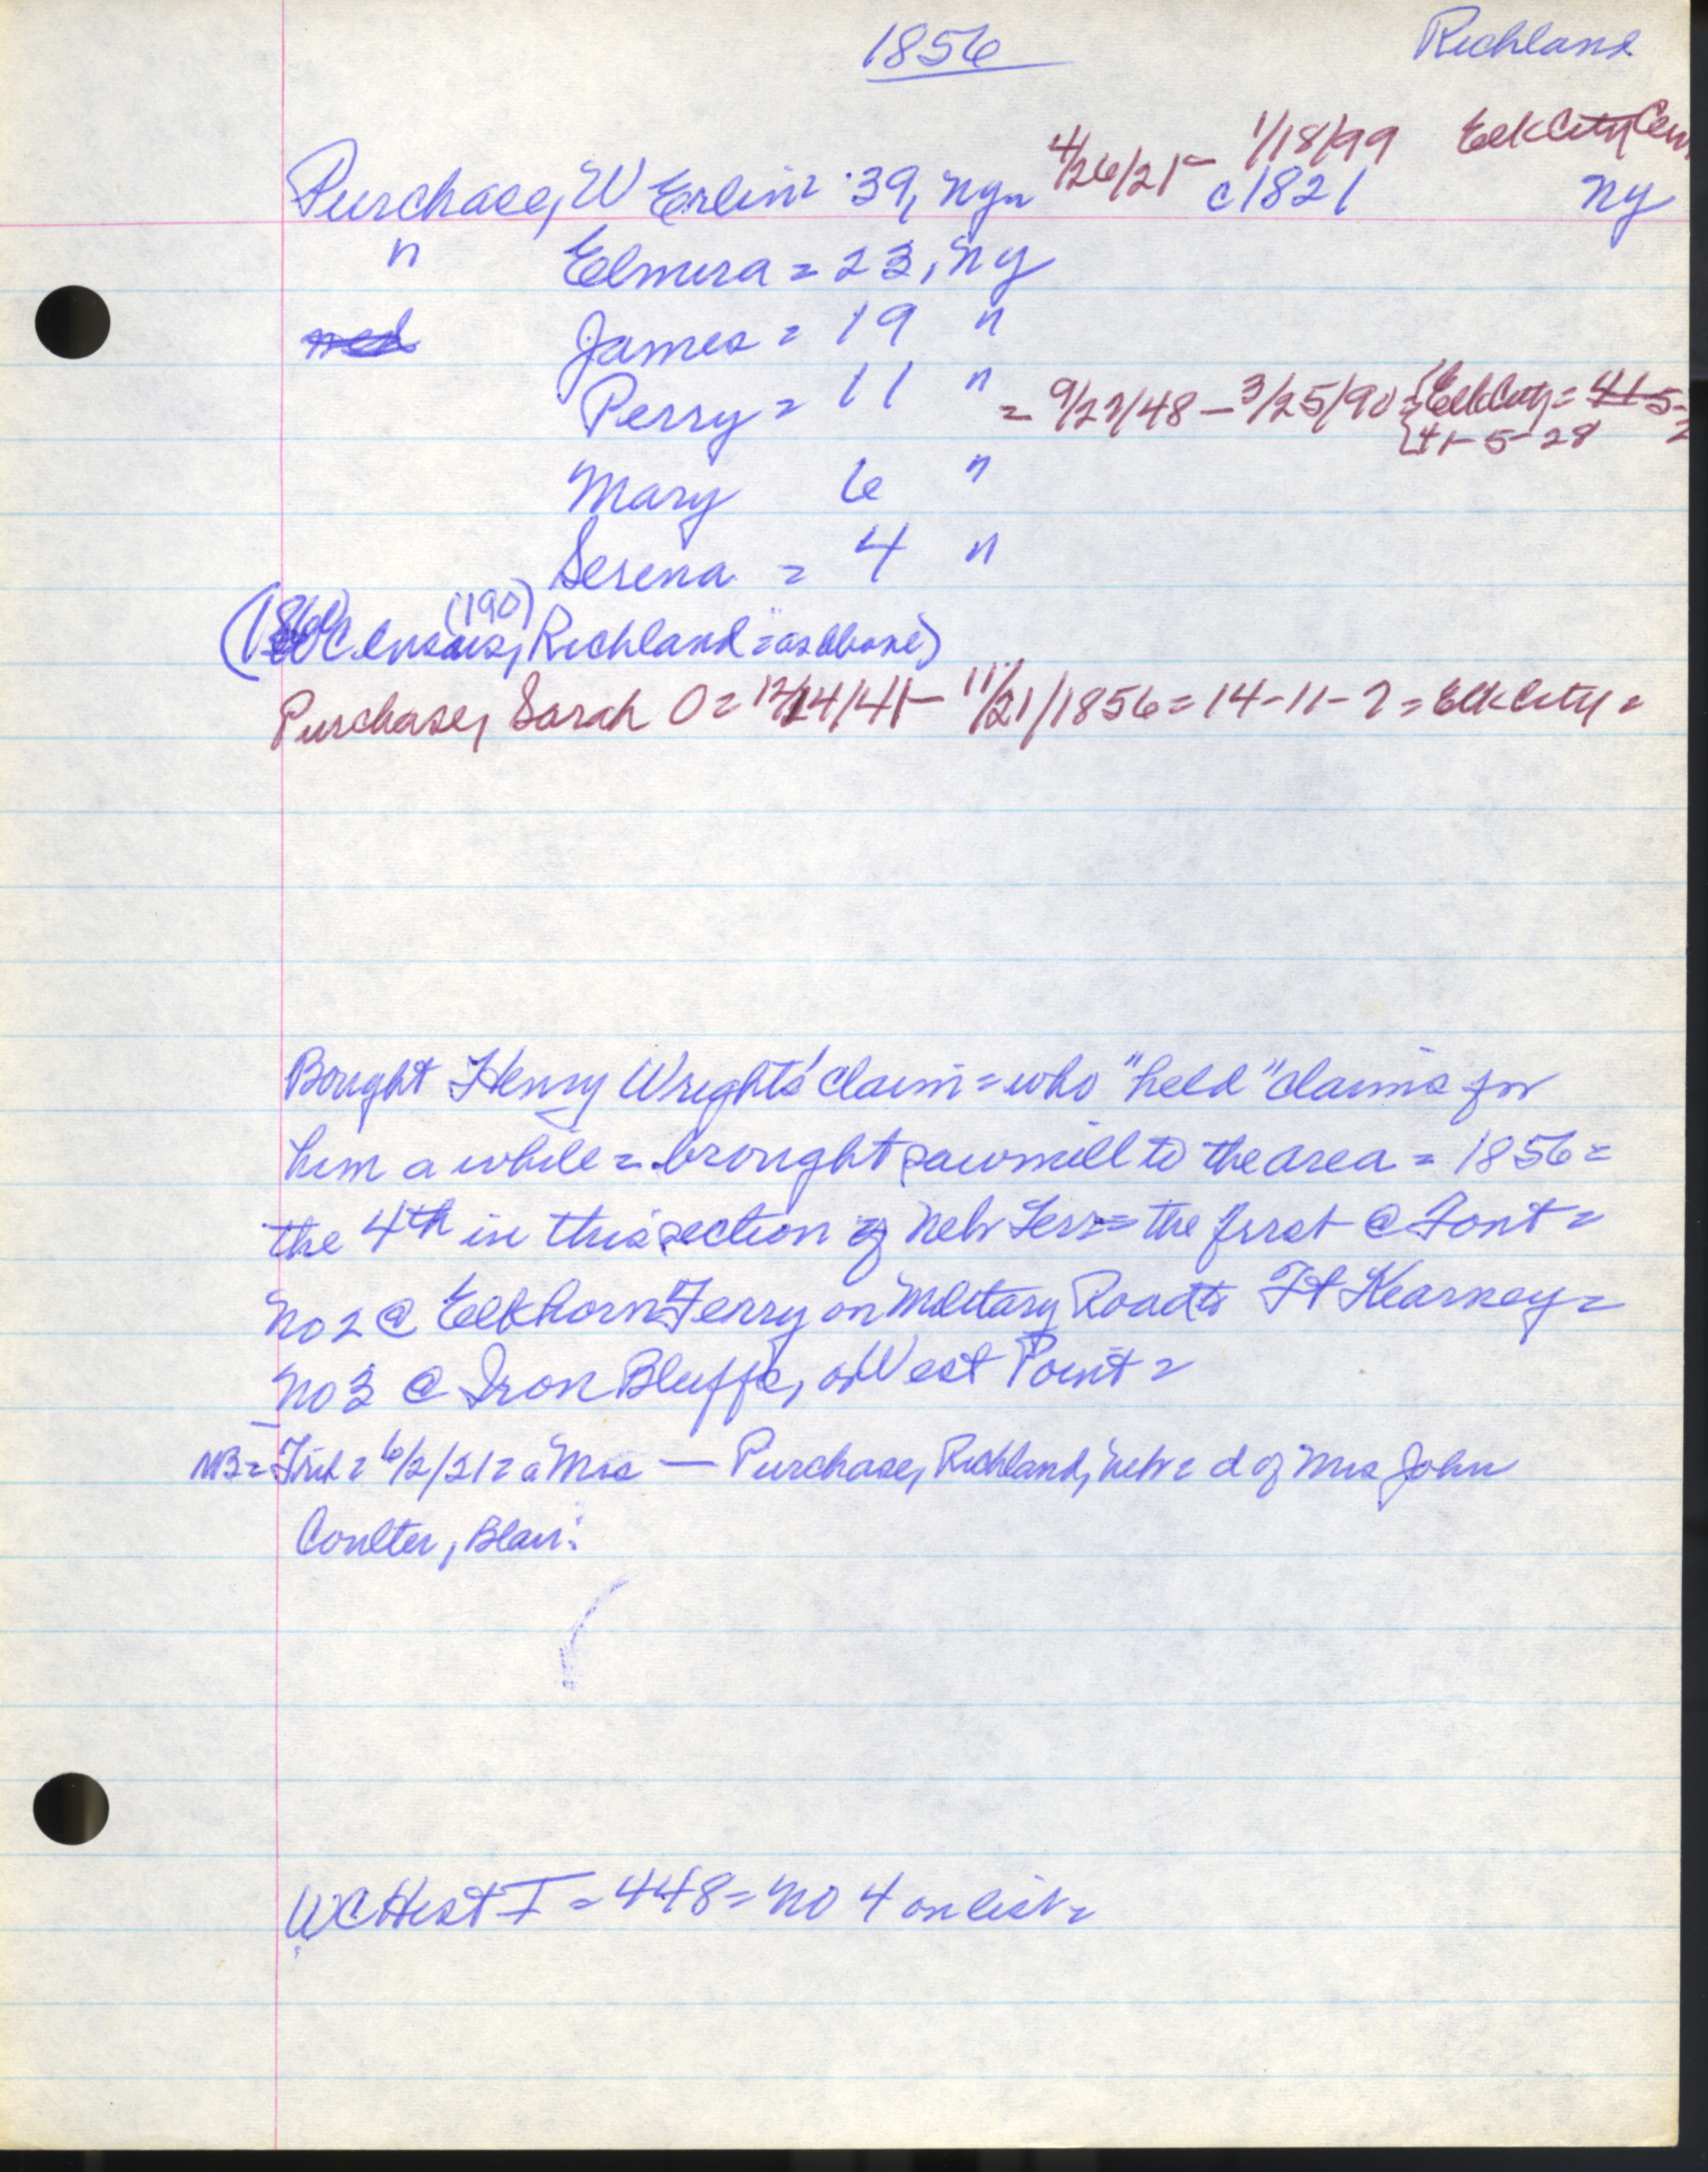 1856 Richland
4/26/21- 1/18/99 Elk City Cem
Purchase, W Erlin = 39, Ny = c1821 Ny
" Elmira = 23, Ny
James = 19 "
Perry = 11 " = 9/27/48 - 3/25/90 = {Elk City = 41-5-
{41-5-28
Mary 6 "
Serena = 4 "
(1860 Census, (190) Richland = as above)
Purchase, Sarah O = 12/14/41- 11/21/1856 = 14-11-7 = Elk City =
Bought Henry Wrights' claim = who "held" claims for
him a while = brought sawmill to the area = 1856 =
the 4th in this section of Neb Terr = the first @ Font =
No 2 @ Elkhorn Ferry on Military Road to Ft Kearney =
No 3 @ Iron Bluffs, or West Point =
NB = Trib = 6/2/21 = a Mrs — Purchase, Richland, Neb = d of Mrs John
Coulter, Blair.
WC Hist I = 448 = No 4 on list =